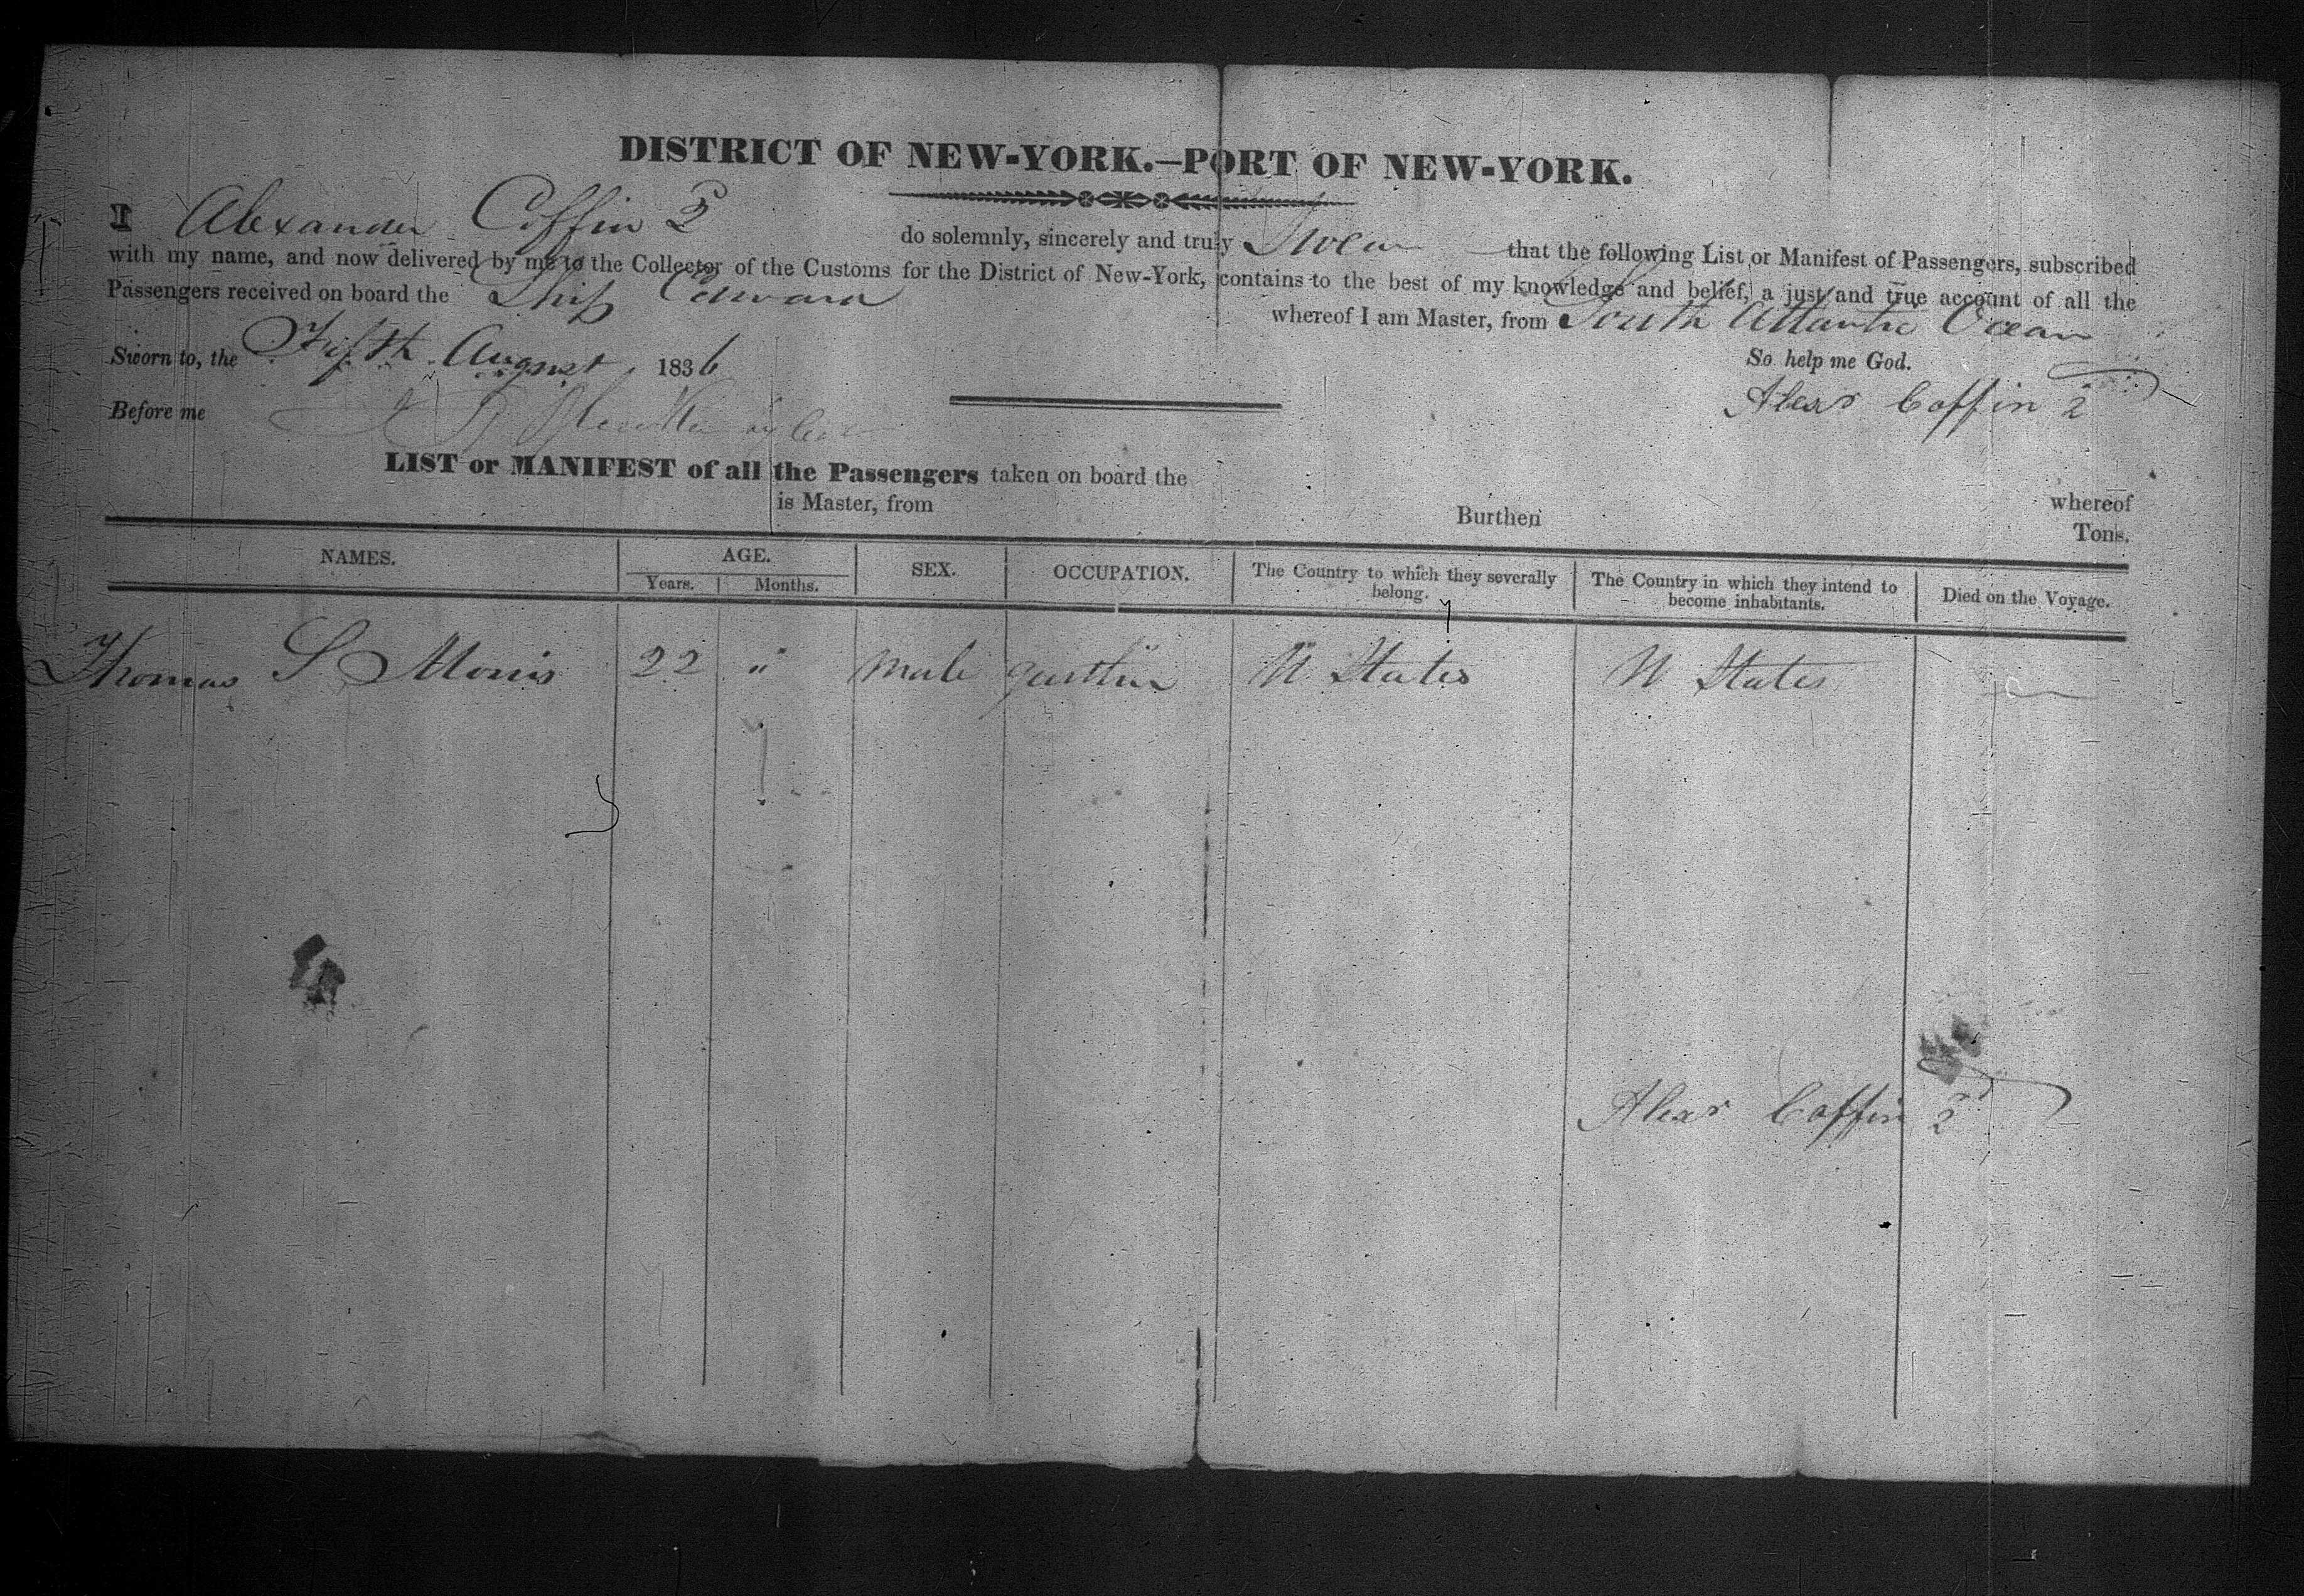 DISTRICT OF NEW-YORK.—PORT OF NEW-YORK.
I Alexander Coffin 2 do solemnly, sincerely and truly Swear that the following List or Manifest of Passengers, subscribed
with my name, and now delivered by me to the Collector of the Customs for the District of New-York, contains to the best of my knowledge and belief, a just and true account of all the
Passengers received on board the Ship Edward whereof I am Master, from South Atlantic Ocean
Sworn to, the Fifth August 1836 So help me God.
Before me Alexr Coffin 2
LIST or MANIFEST of all the Passengers taken on board the whereof
is Master, from Burthen Tons.
NAMES. AGE. SEX. OCCUPATION. The Country to which they severally belong. The Country in which they intend to become inhabitants. Died on the Voyage.
Years. Months.
Thomas S Morris 22 " male U States U States
Alexr Coffin 2